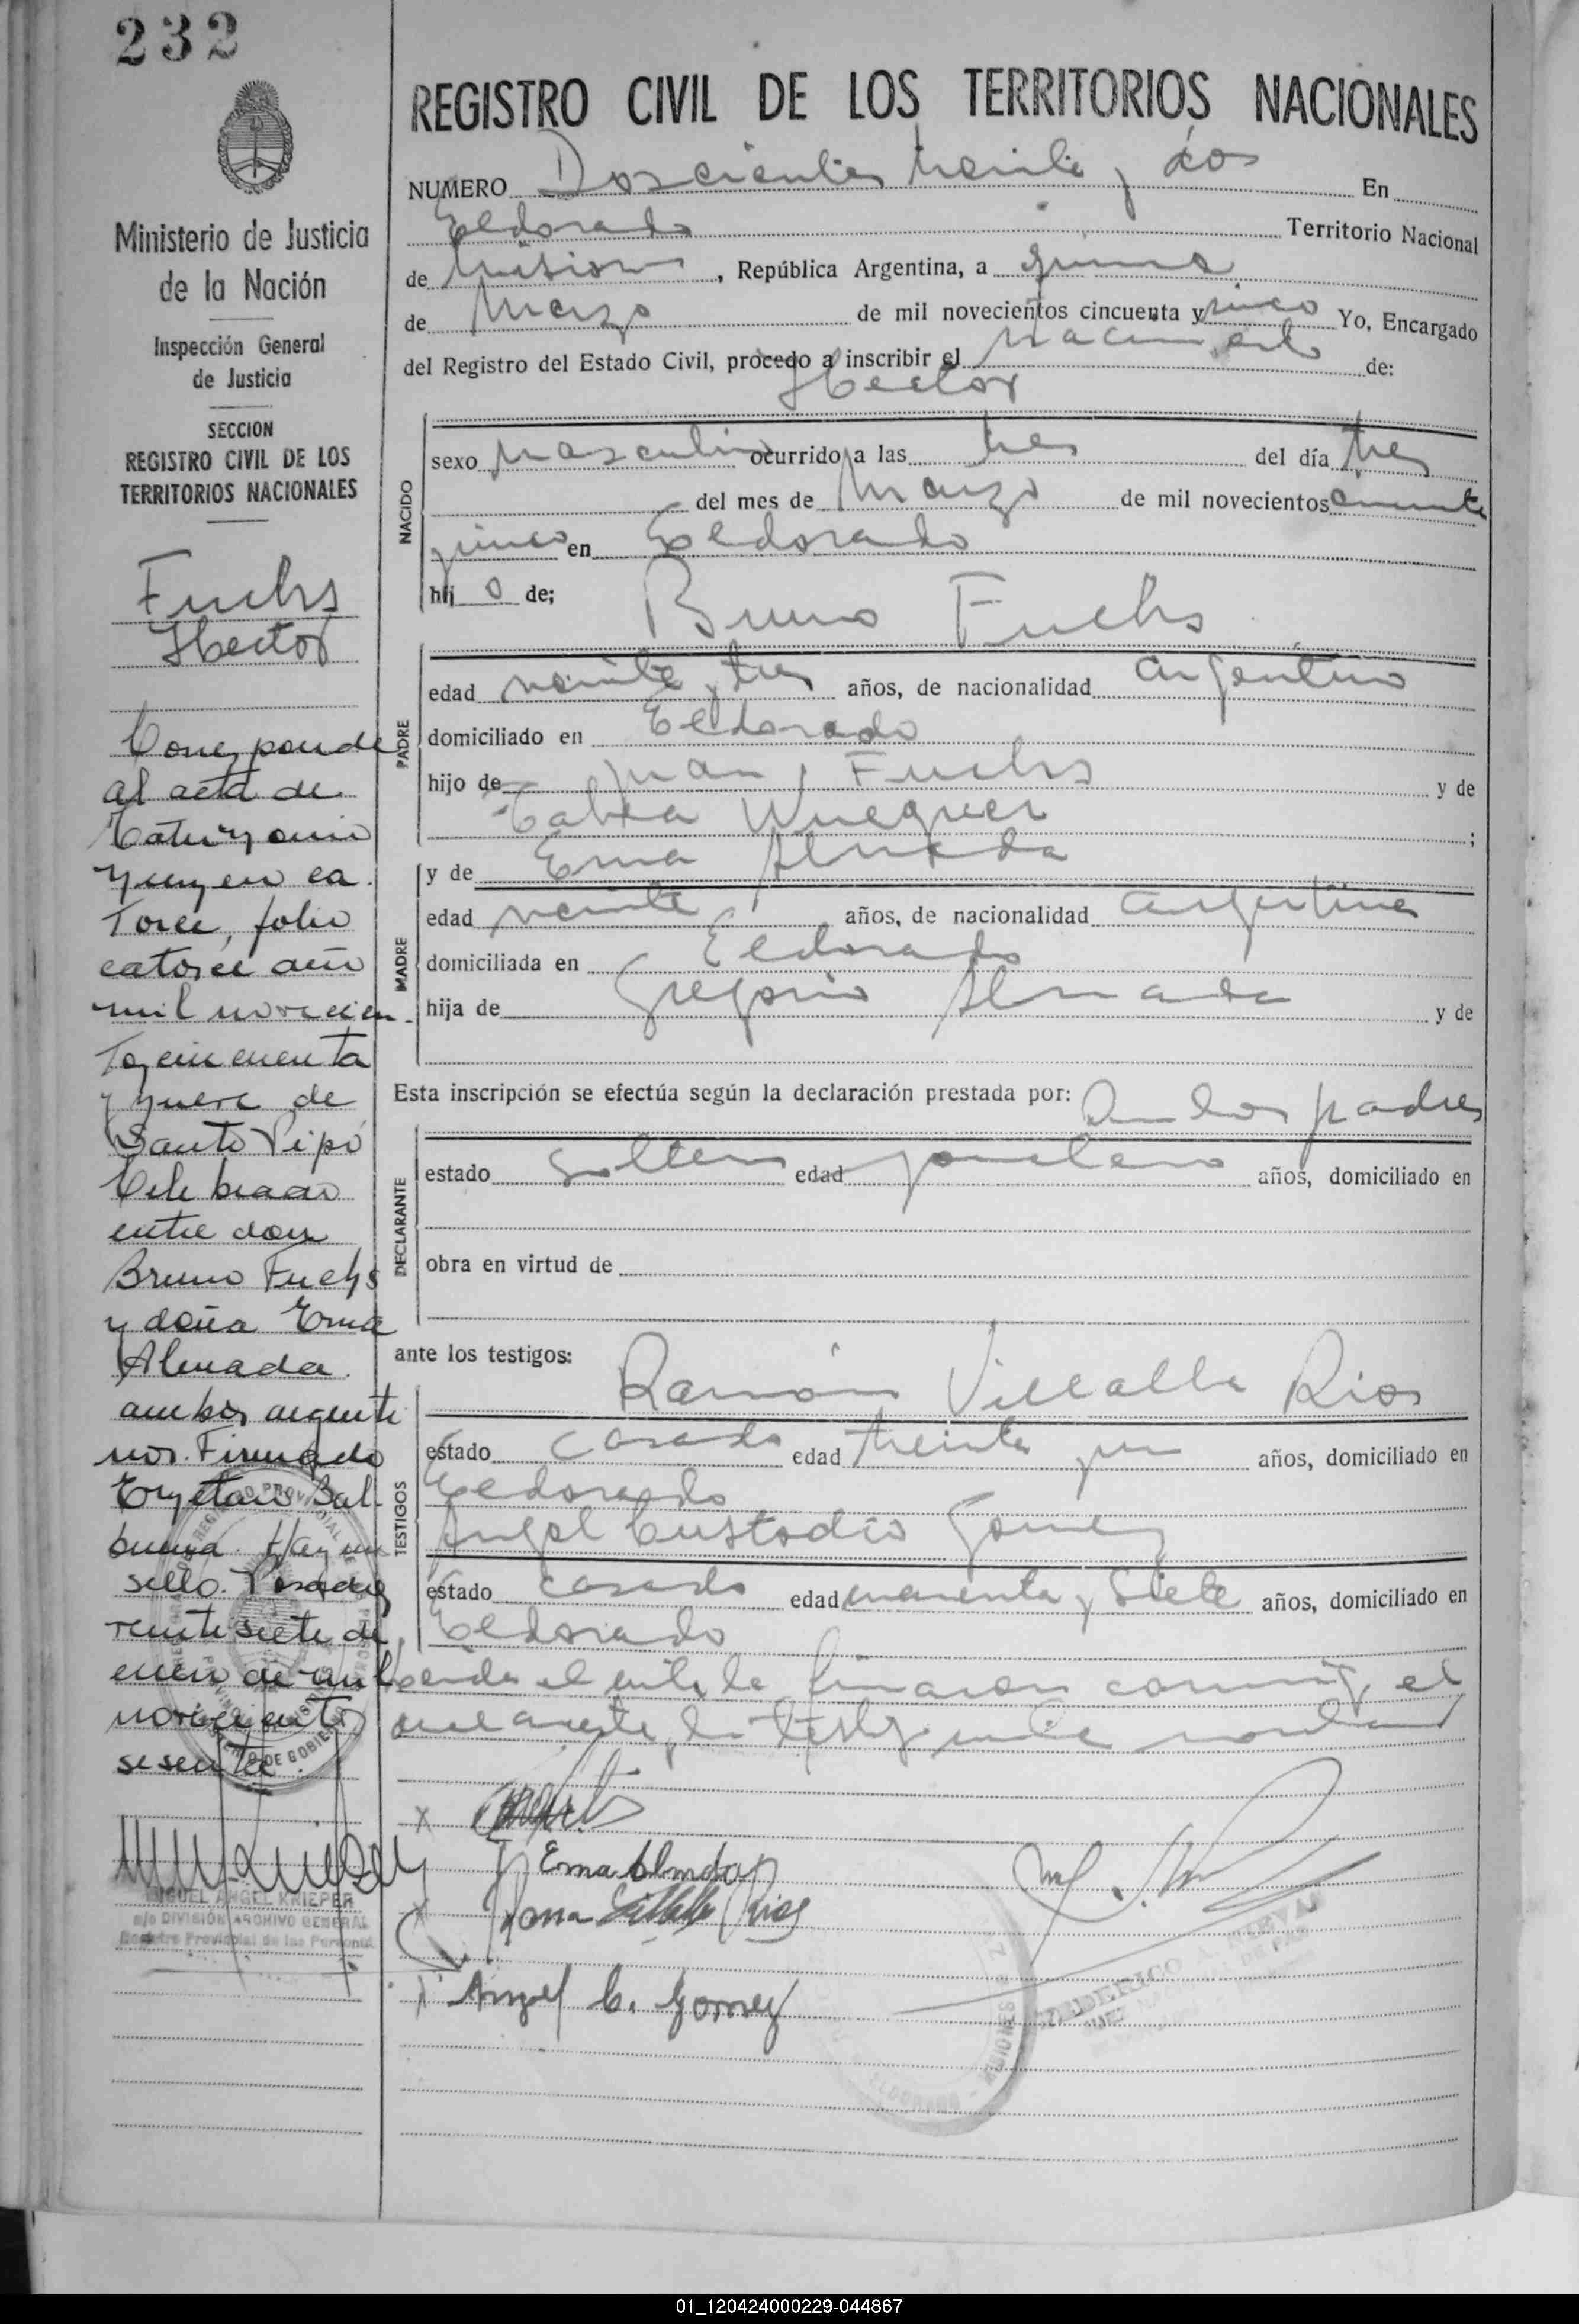 232
Ministerio de Justicia
de la Nación
Inspección General
de Justicia
SECCION
REGISTRO CIVIL DE LOS
TERRITORIOS NACIONALES
Fuchs
Hector
Corresponde
al acta de
folio
catorce año
mil novecien-
tos cincuenta
y nueve de
Santo Pipó
Celebrado
entre don
Bruno Fuchs
y doña Erma
Almada.
ambos argenti
nos. Firmado
Bal-
buena. Hay un
sello. Posadas
veintisiete de
enero de mil
novecientos
sesenta.
MIGUEL ANGEL KRIEPER
a/c DIVISIÓN ARCHIVO GENERAL
Registro Provincial de las Personas
REGISTRO CIVIL DE LOS TERRITORIOS NACIONALES
NUMERO Doscientos treinta y dos En
Eldorado Territorio Nacional
de Misiones, República Argentina, a quince
de Marzo de mil novecientos cincuenta y cinco Yo, Encargado
del Registro del Estado Civil, procedo a inscribir el nacimiento de:
Hector
NACIDO
sexo masculino ocurrido a las tres del día tres
del mes de Marzo de mil novecientos cincuenta
cinco en Eldorado
hij o de; Bruno Fuchs
PADRE
edad veinte y tres años, de nacionalidad argentino
domiciliado en Eldorado
hijo de Juan Fuchs y de
;
y de Erma Almada
MADRE
edad veinte años, de nacionalidad argentina
domiciliada en Eldorado
hija de Gregorio Almada y de
Esta inscripción se efectúa según la declaración prestada por: Ambos padres
DECLARANTE
estado solteros edad años, domiciliado en
obra en virtud de
ante los testigos:
Ramón Villalba Rios
TESTIGOS
estado casado edad treinta años, domiciliado en
Eldorado
Angel Custodio Gomez
estado casado edad cuarenta y siete años, domiciliado en
Eldorado
Leida el acta la firmaron conmigo, el
Erma Almada
Rios
Angel C. Gomez
FEDERICO
01_120424000229-044867